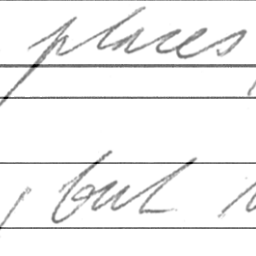 places
, but